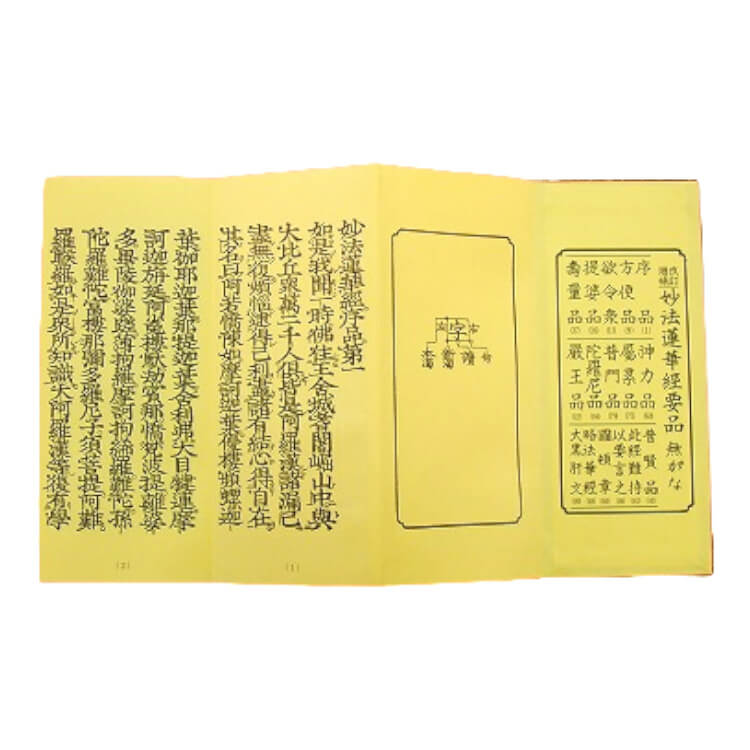 改訂
増補
妙法蓮華經要品 無がな
序品(1)
方便品
欲令衆
提婆品
壽量品
神力品
屬累品
普門品
陀羅尼品
嚴王品
普賢品
此經難持
以要言之
頓章
略法華經
大黒肝文
字
右
左
讀
句
妙法蓮華經序品第一
如是我聞一時佛住王舍城耆闍崛山中與
大比丘衆萬二千人俱皆是阿羅漢諸漏已
盡無復煩惱逮得己利盡諸有結心得自在
其名曰阿若憍陳如摩訶迦葉優樓頻螺迦
(1)
葉伽耶迦葉那提迦葉舍利弗大目犍連摩
訶迦旃延阿㝹樓馱劫賓那憍梵波提離婆
多畢陵伽婆蹉薄拘羅摩訶拘絺羅難陀孫
陀羅難陀富樓那彌多羅尼子須菩提阿難
羅睺羅如是衆所知識大阿羅漢等復有學
(2)